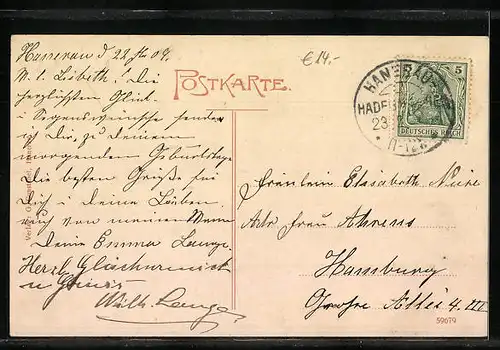 Hanerau d 22 09.
M. l. Lisbeth! Die
herzlichsten Glück-
u Segenswünsche senden
ich Dir, zu Deinem
morgenden Geburtstage
Die besten Grüße für
Dich u Deine Lieben.
auch von meinem Mann
Deine Emma Lange.
Herzl. Glückwunsch
u Gruss
Wilh. Lange.
€14.-
POSTKARTE.
HANERAU
HADEMARSCHEN
23
11-12
5
DEUTSCHES REICH
Fräulein Elisabeth
Adr Frau Ahrens
Hamburg
Grosse Allee 4. III
59679
Verlag